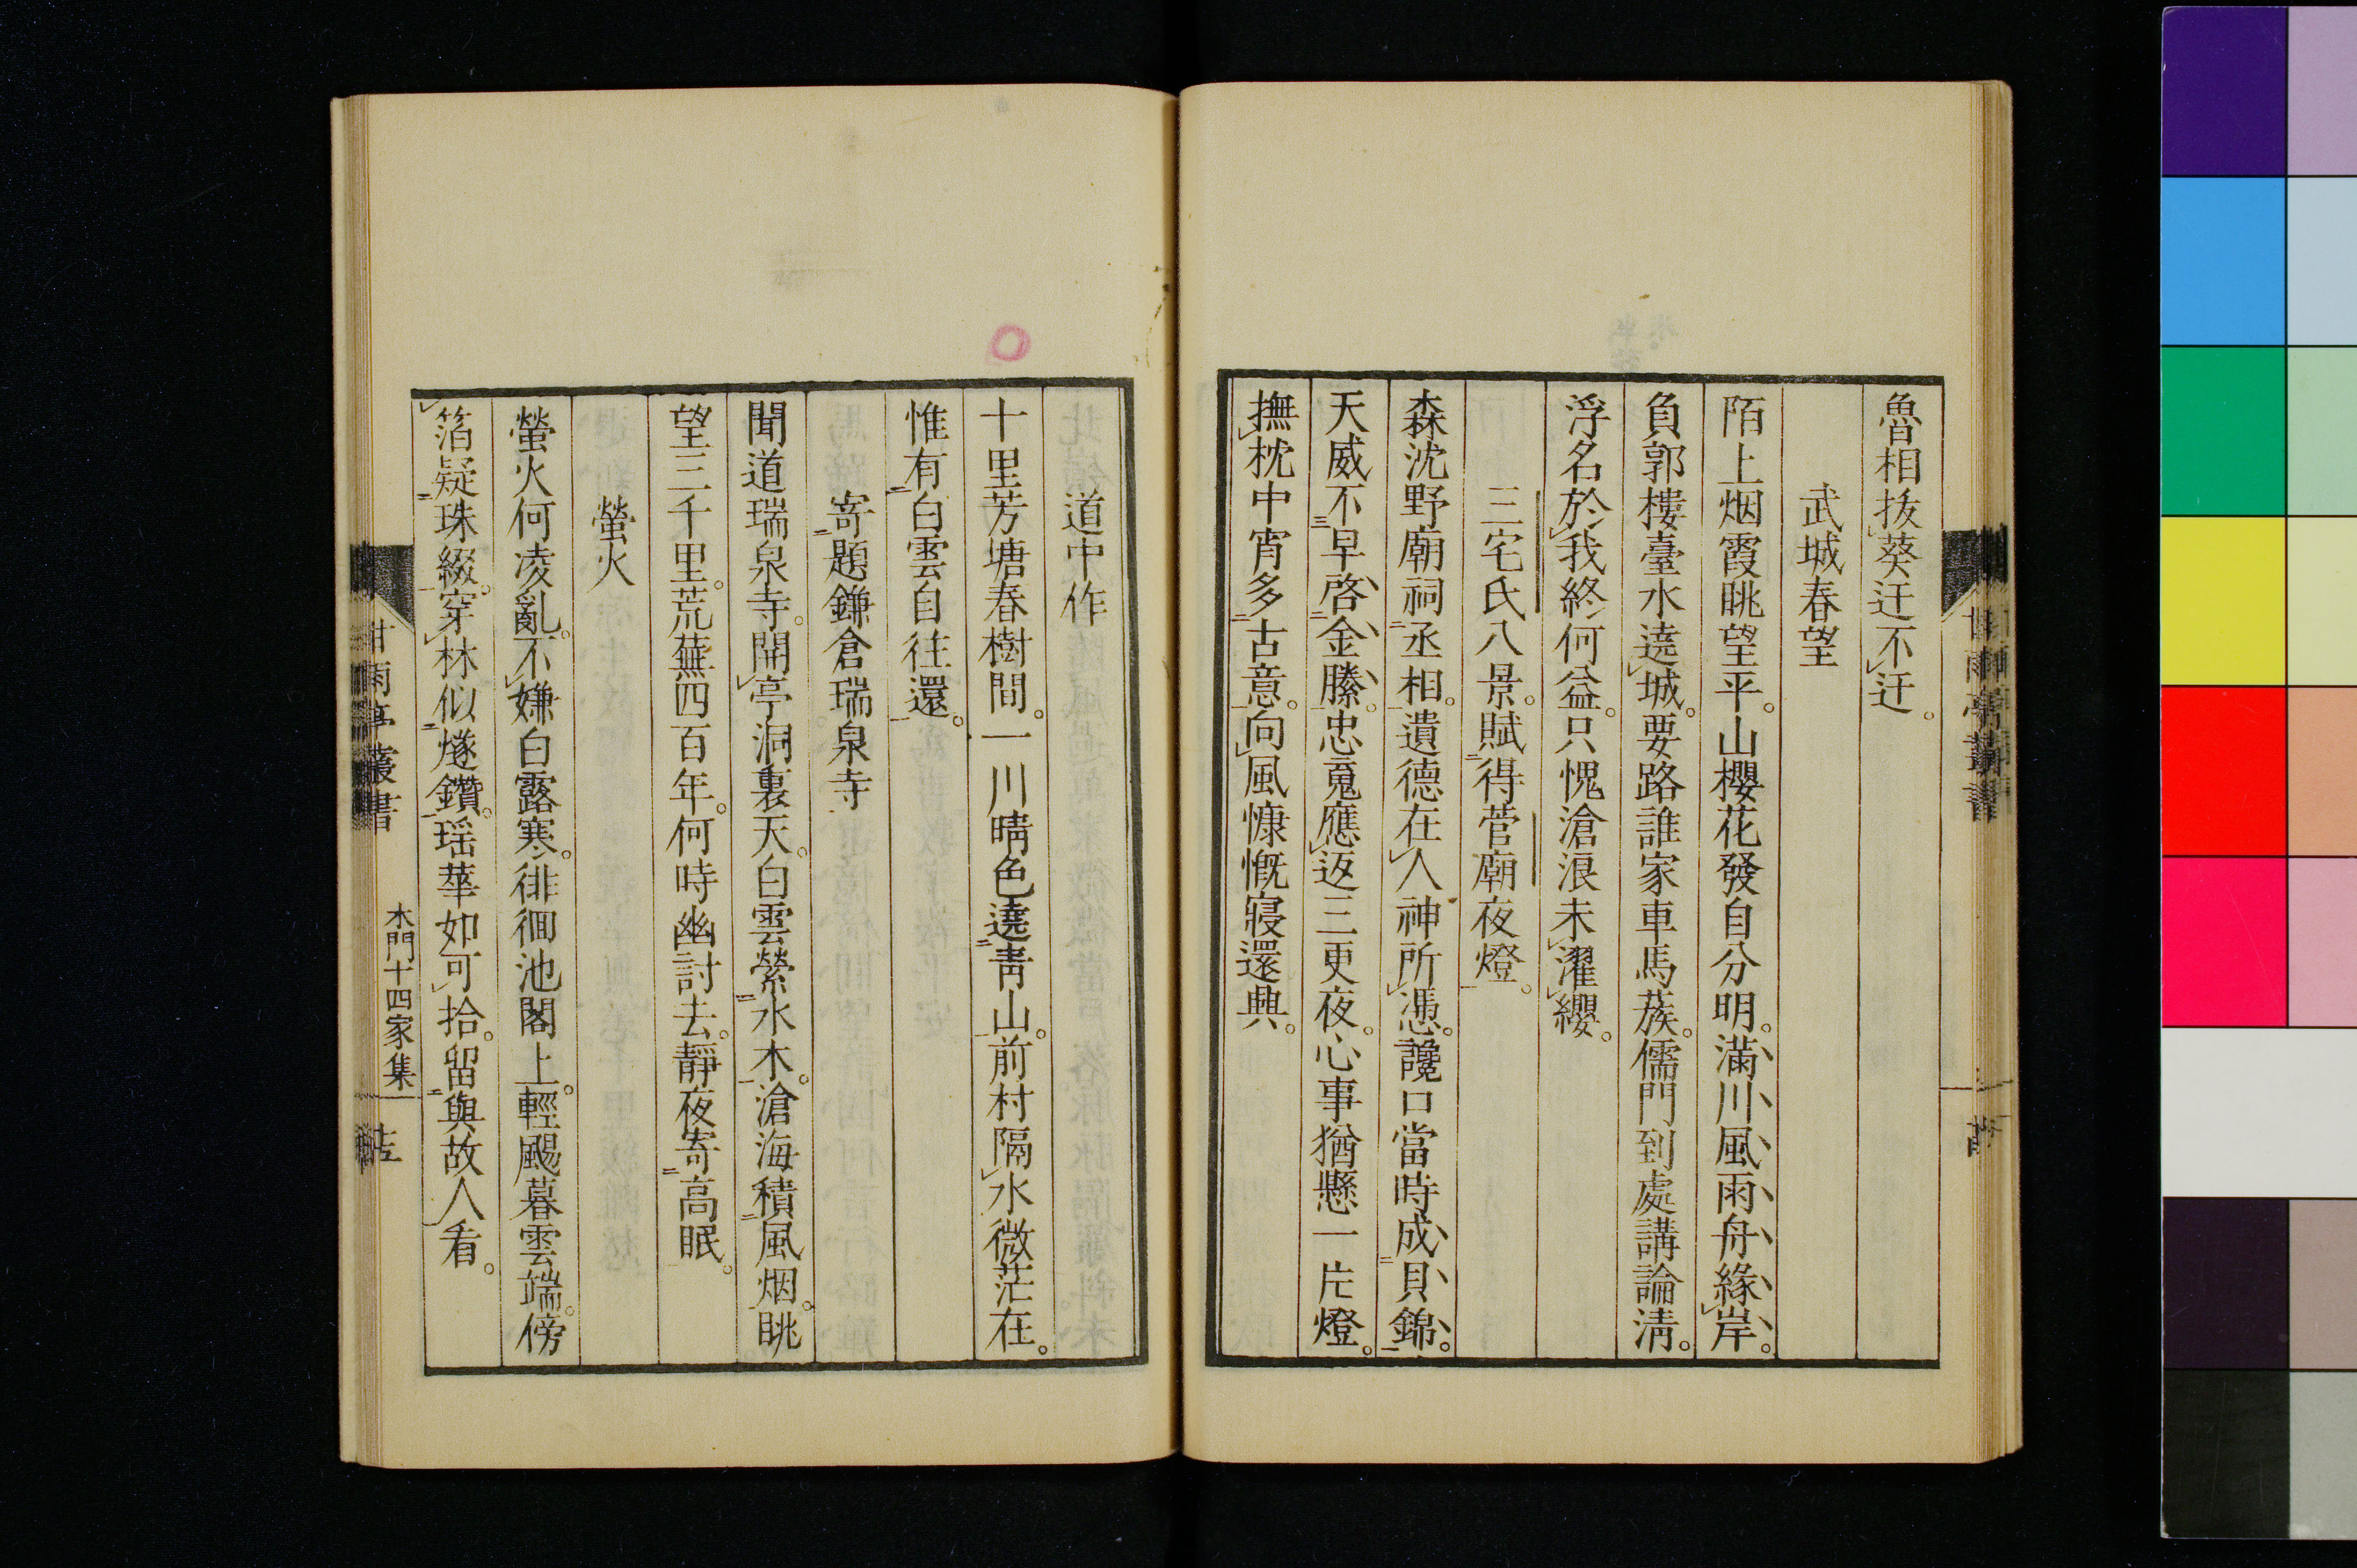 魯相拔葵迂不迂。
武城春望
陌上烟霞眺望平。山櫻花發自分明。滿川風雨舟緣岸。
負郭樓臺水遶城。要路誰家車馬蔟。儒門到處講論淸。
浮名於我終何益。只愧滄浪未濯纓。
三宅氏八景。賦得菅廟夜燈。
森沈野廟祠丞相。遺德在人神所憑。讒口當時成貝錦。
天威不早啓金縢。忠寃應返三更夜。心事猶懸一片燈。
撫枕中宵多古意。向風慷慨寢還興。
道中作
十里芳塘春樹間。一川晴色遶靑山。前村隔水微茫在。
惟有白雲自往還。
寄題鎌倉瑞泉寺
聞道瑞泉寺。開亭洞裏天。白雲縈水木。滄海積風烟。眺
望三千里。荒蕪四百年。何時幽討去。靜夜寄高眠。
螢火
螢火何凌亂。不嫌白露寒。徘徊池閣上。輕颺暮雲端。傍
箔疑珠綴。穿林似燧鑽。瑶華如可拾。留與故人看。
甘雨亭叢書
木門十四家集